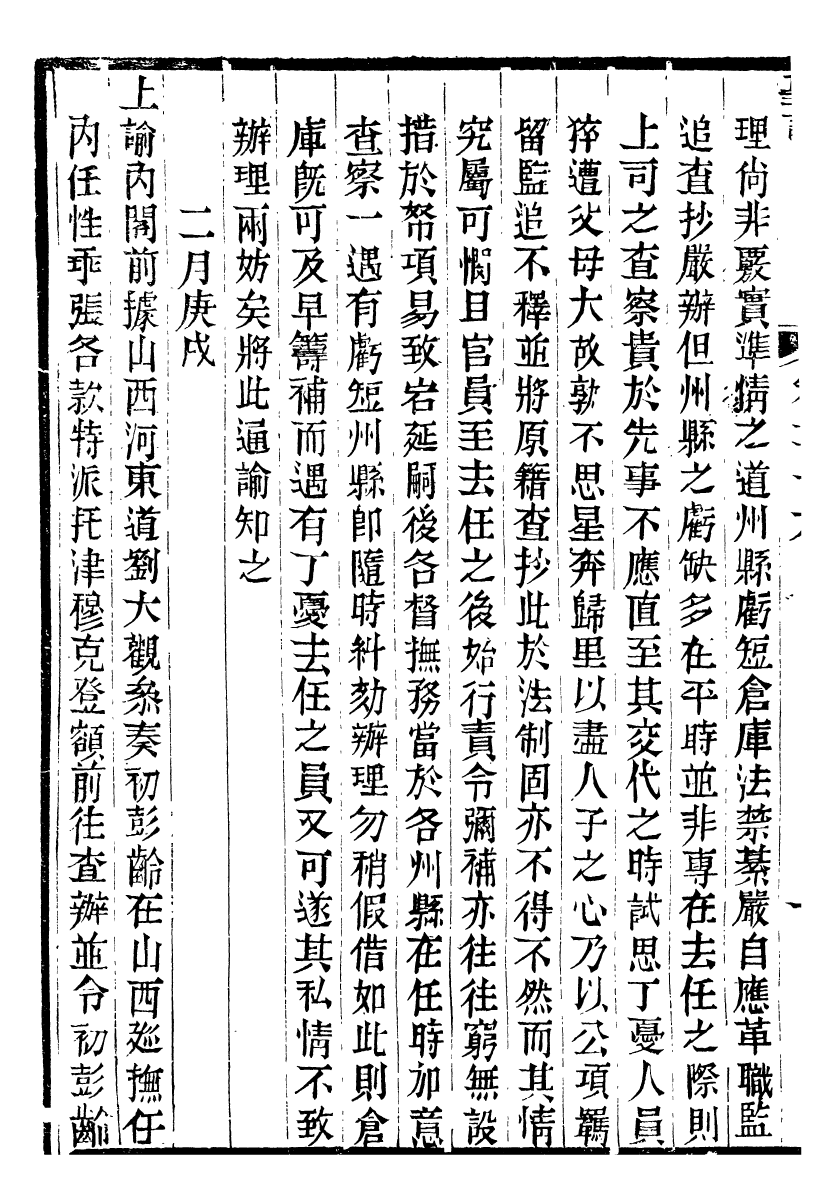 理尚非覈實準情之道州縣虧短倉庫法禁綦嚴自應革職監
追查抄嚴辦但州縣之虧缺多在平時並非專在去任之際則
上司之查察貴於先事不應直至其交代之時試思丁憂人員
猝遭父母大故孰不思星奔歸里以盡人子之心乃以公項羈
留監追不釋並將原籍查抄此於法制固亦不得不然而其情
究屬可憫且官員至去任之後始行責令彌補亦往往窮無設
措於帑項易致宕延嗣後各督撫務當於各州縣在任時加意
查察一遇有虧短州縣即隨時糾劾辦理勿稍假借如此則倉
庫旣可及早籌補而遇有丁憂去任之員又可遂其私情不致
辦理兩妨矣將此通諭知之
二月庚戌
上諭內閣前據山西河東道劉大觀叅奏初彭齡在山西廵撫任
內任性乖張各款特派托津穆克登額前往查辦並令初彭齡